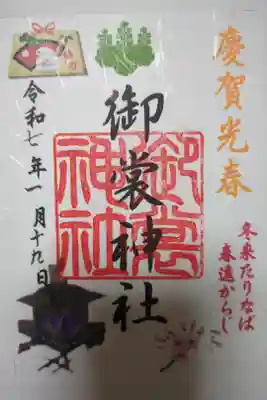 慶賀光春
冬来たりなば
春遠からじ
御裳神社
御裳神社
令和七年一月十九日